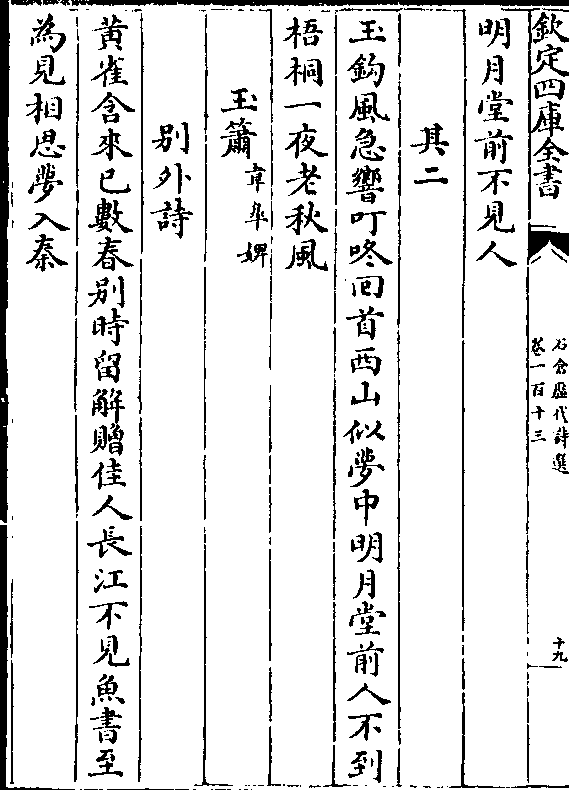 欽定四庫全書
石倉歷代詩選
卷一百十三
十九
明月堂前不見人
其二
玉鈎風急響叮咚回首西山似夢中明月堂前人不到
梧桐一夜老秋風
玉簫韋臯婢
別外詩
黄雀含來已數春别時留解贈佳人長江不見魚書至
為見相思夢入秦